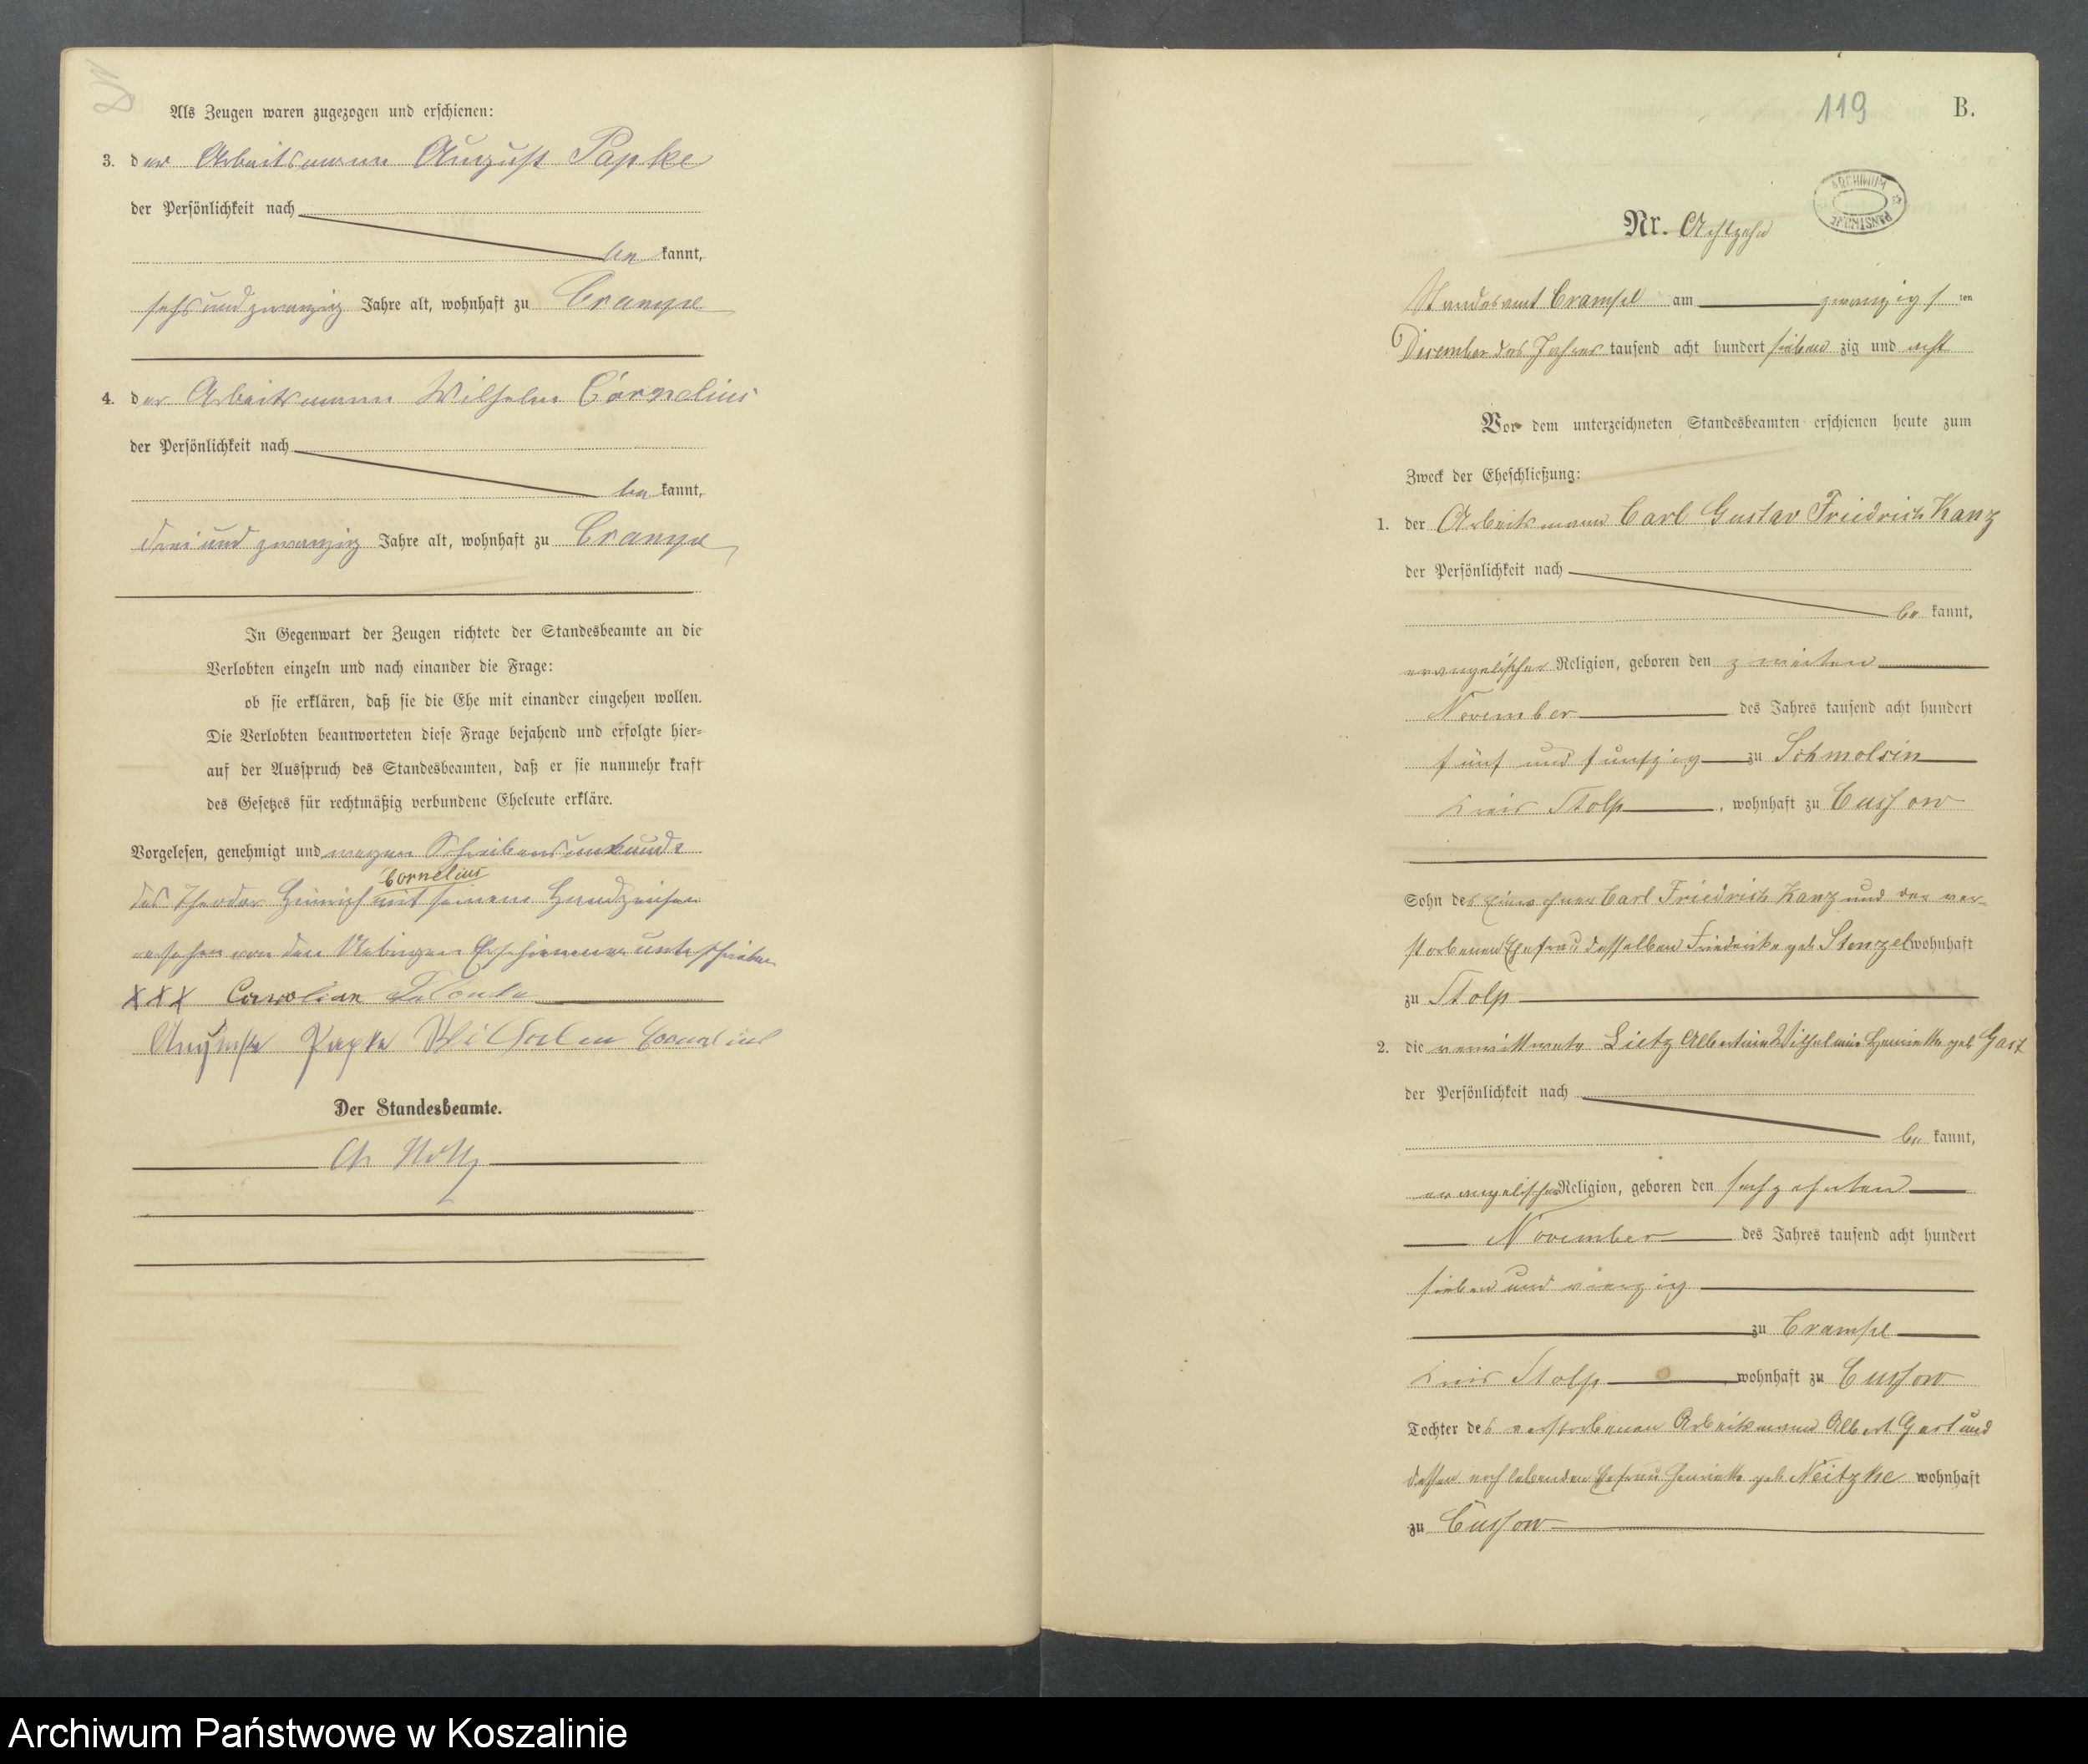 Als Zeugen waren zugezogen und erschienen:
3. der Arbeitsmann August Papke
der Persönlichkeit nach
be kannt,
sechs und zwanzig Jahre alt, wohnhaft zu Crampe
4. der Arbeitsmann Wilhelm Cornelius
der Persönlichkeit nach
be kannt,
drei und zwanzig Jahre alt, wohnhaft zu Crampe
In Gegenwart der Zeugen richtete der Standesbeamte an die
Verlobten einzeln und nach einander die Frage:
ob sie erklären, daß sie die Ehe mit einander eingehen wollen.
Die Verlobten beantworteten diese Frage bejahend und erfolgte hier-
auf der Ausspruch des Standesbeamten, daß er sie nunmehr kraft
des Gesetzes für rechtmäßig verbundene Eheleute erkläre.
Vorgelesen, genehmigt und wegen Schreibensunkunde
Cornelius
des Theodor Heinrich mit seinem Handzeichen
versehen von den Uebrigen Erschienenen unterschrieben
XXX
August Papke Wilhelm Cornelius
Der Standesbeamte.
119
B.
ARCHIWUM PAŃSTWOWE
Nr. Achtzehn
Standesamt Crampe am zwanzigsten
December des Jahres tausend acht hundert sieben zig und acht
Vor dem unterzeichneten Standesbeamten erschienen heute zum
Zweck der Eheschließung:
1. der Arbeitsmann Carl Gustav Friedrich Kanz
der Persönlichkeit nach
be kannt,
evangelischer Religion, geboren den zweiten
November des Jahres tausend acht hundert
fünf und funfzig zu Schmolsin
Kreis Stolp, wohnhaft zu Cussow
Sohn des Einwohner Carl Friedrich Kanz und der ver-
storbenen Ehefrau desselben Friederike geb Stenzel wohnhaft
zu Stolp
2. die verwittwete Lietz Albertine Wilhelmine Henriette geb Gast
der Persönlichkeit nach
be kannt,
evangelischer Religion, geboren den sechzehnten
November des Jahres tausend acht hundert
sieben und vierzig
zu Crampe
Kreis Stolp, wohnhaft zu Cussow
Tochter des verstorbenen Arbeitsmann Albert Gast und
dessen noch lebenden Ehefrau Henriette geb Neitzke wohnhaft
zu Cussow
Archiwum Państwowe w Koszalinie